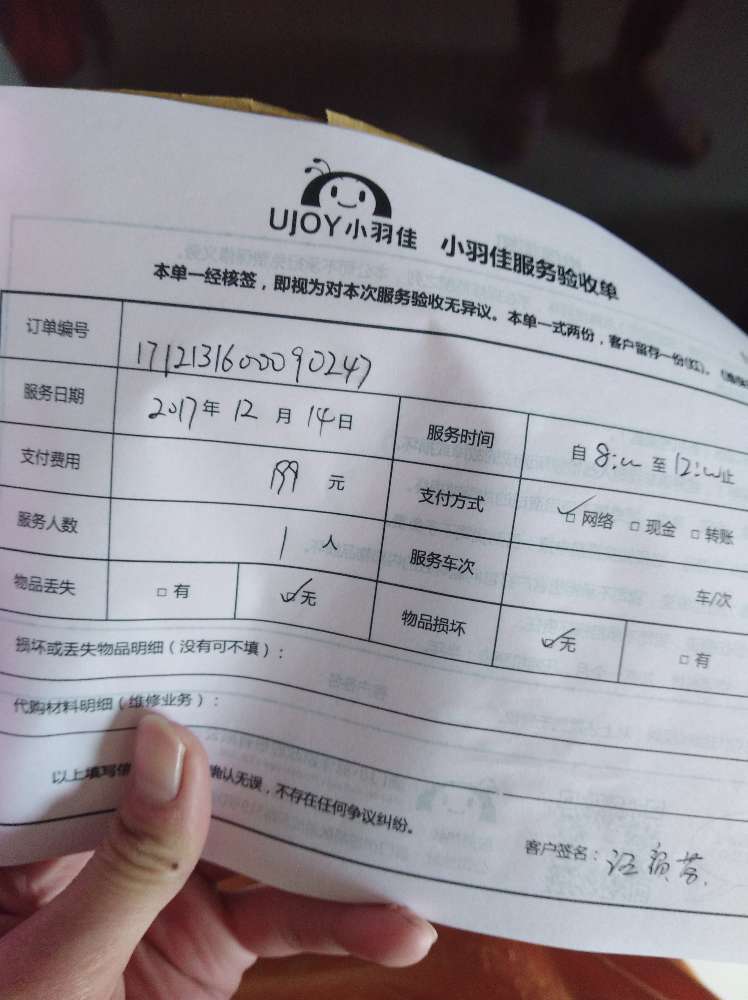 UJOY小羽佳 小羽佳服务验收单
本单一经核签，即视为对本次服务验收无异议。本单一式两份，客户留存一份(红)。
订单编号 1712131600090247
服务日期 2017年 12 月 14日 服务时间 自 8:00 至 12:00止
支付费用 199 元 支付方式 ☑网络 □现金 □转账
服务人数 1 人 服务车次 车/次
物品丢失 □有 ☑无 物品损坏 ☑无 □有
损坏或丢失物品明细（没有可不填）：
代购材料明细（维修业务）：
以上填写信 确认无误，不存在任何争议纠纷。
客户签名：汪